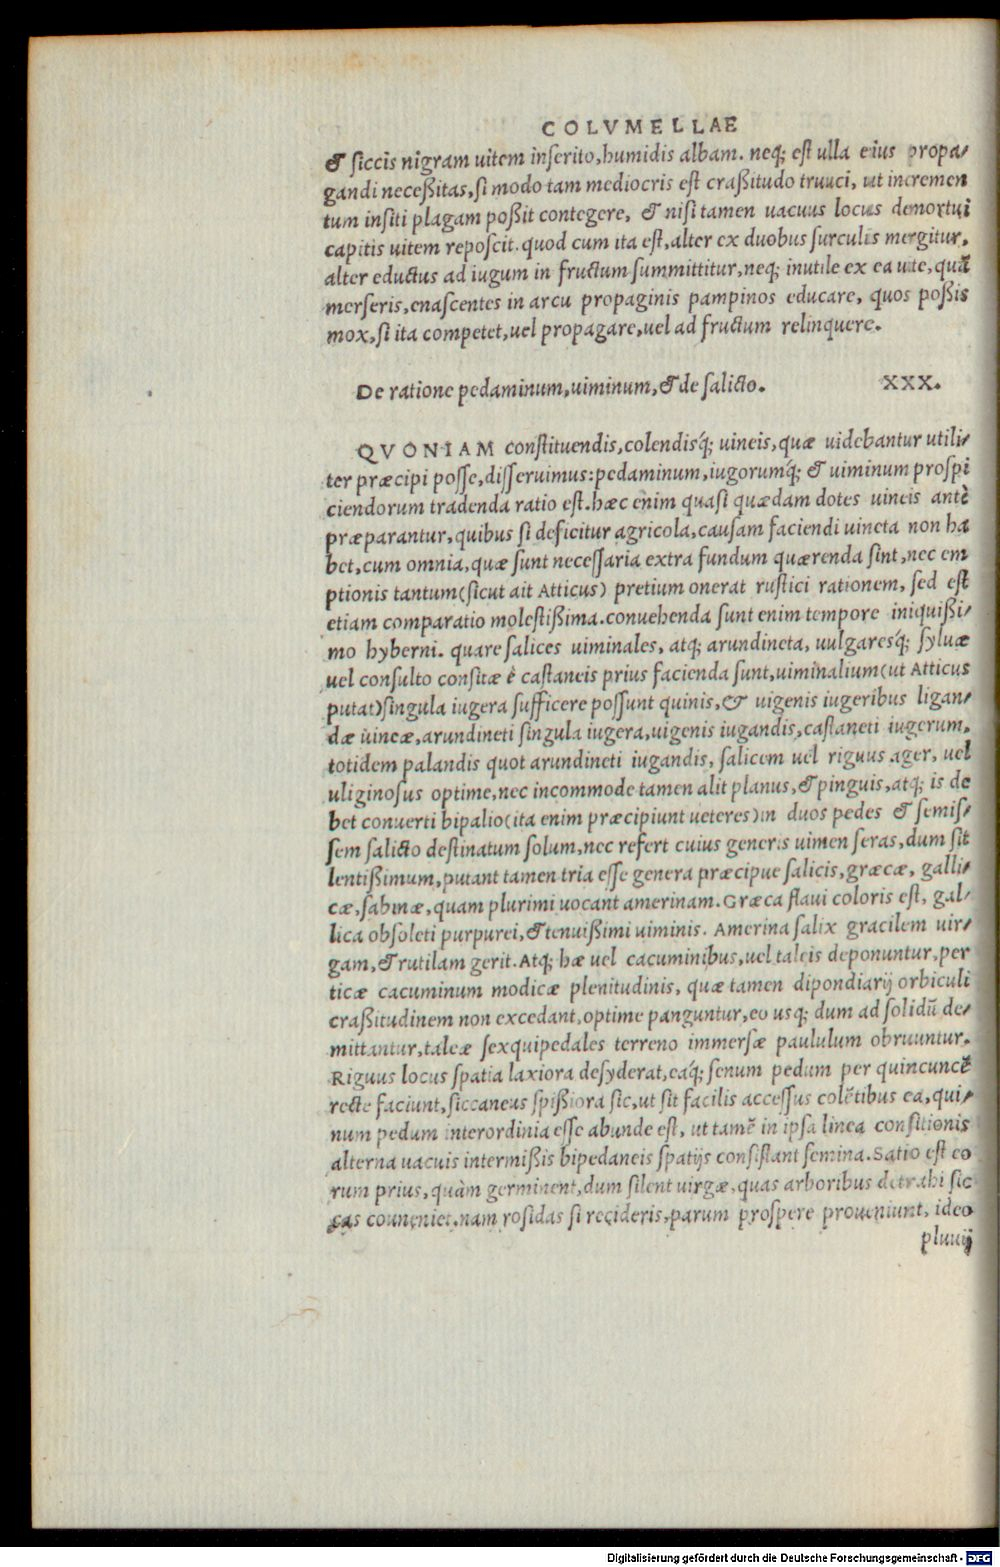 COLVMELLAE
& siccis nigram uitem inserito, humidis albam. neq; est ulla eius propa/
gandi neceßitas, si modo tam mediocris est craßitudo trunci, ut incremen
tum insiti plagam poßit contegere, & nisi tamen uacuus locus demortui
capitis uitem reposcit. quod cum ita est, alter ex duobus surculis mergitur,
alter eductus ad iugum in fructum summittitur, neq; inutile ex ea uite, quã
merseris, enascentes in arcu propaginis pampinos educare, quos poßis
mox, si ita competet, uel propagare, uel ad fructum relinquere.
De ratione pedaminum, uiminum, & de salicto. XXX.
QVONIAM constituendis, colendisq́; uineis, quæ uidebantur utili/
ter præcipi posse, disseruimus: pedaminum, iugorumq́; & uiminum prospi
ciendorum tradenda ratio est. hæc enim quasi quædam dotes uineis antè
præparantur, quibus si deficitur agricola, causam faciendi uineta non ha
bet, cum omnia, quæ sunt necessaria extra fundum quærenda sint, nec em
ptionis tantum (sicut ait Atticus) pretium onerat rustici rationem, sed est
etiam comparatio molestißima. conuehenda sunt enim tempore iniquißi/
mo hyberni. quare salices uiminales, atq; arundineta, uulgaresq́; syluæ
uel consulto consitæ è castaneis prius facienda sunt, uiminalium (ut Atticus
putat) singula iugera sufficere possunt quinis, & uigenis iugeribus ligan/
dæ uineæ, arundineti singula iugera, uigenis iugandis, castaneti iugerum,
totidem palandis quot arundineti iugandis, salicem uel riguus ager, uel
uliginosus optime, nec incommode tamen alit planus, & pinguis, atq; is de
bet conuerti bipalio (ita enim præcipiunt ueteres) in duos pedes & semis/
sem salicto destinatum solum, nec refert cuius generis uimen seras, dum sit
lentißimum, putant tamen tria esse genera præcipue salicis, græcæ, galli/
cæ, sabinæ, quam plurimi uocant amerinam. Græca flaui coloris est, gal/
lica obsoleti purpurei, & tenuißimi uiminis. Amerina salix gracilem uir/
gam, & rutilam gerit. Atq; hæ uel cacuminibus, uel taleis deponuntur, per
ticæ cacuminum modicæ plenitudinis, quæ tamen dipondiarij orbiculi
craßitudinem non excedant, optime panguntur, eo usq; dum ad solidũ de/
mittantur, taleæ sexquipedales terreno immersæ paululum obruuntur.
Riguus locus spatia laxiora desyderat, eaq́; senum pedum per quincuncẽ
recte faciunt, siccaneus spißiora sic, ut sit facilis accessus colẽtibus ea, qui/
num pedum interordinia esse abunde est, ut tamẽ in ipsa linea consitionis
alterna uacuis intermißis bipedaneis spatijs consistant semina. Satio est eo
rum prius, quàm germinent, dum silent uirgæ, quas arboribus detrahi sic
cas conueniet. nam rosidas si recideris, parum prospere proueniunt, ideo
pluuij
Digitalisierung gefördert durch die Deutsche Forschungsgemeinschaft - DFG